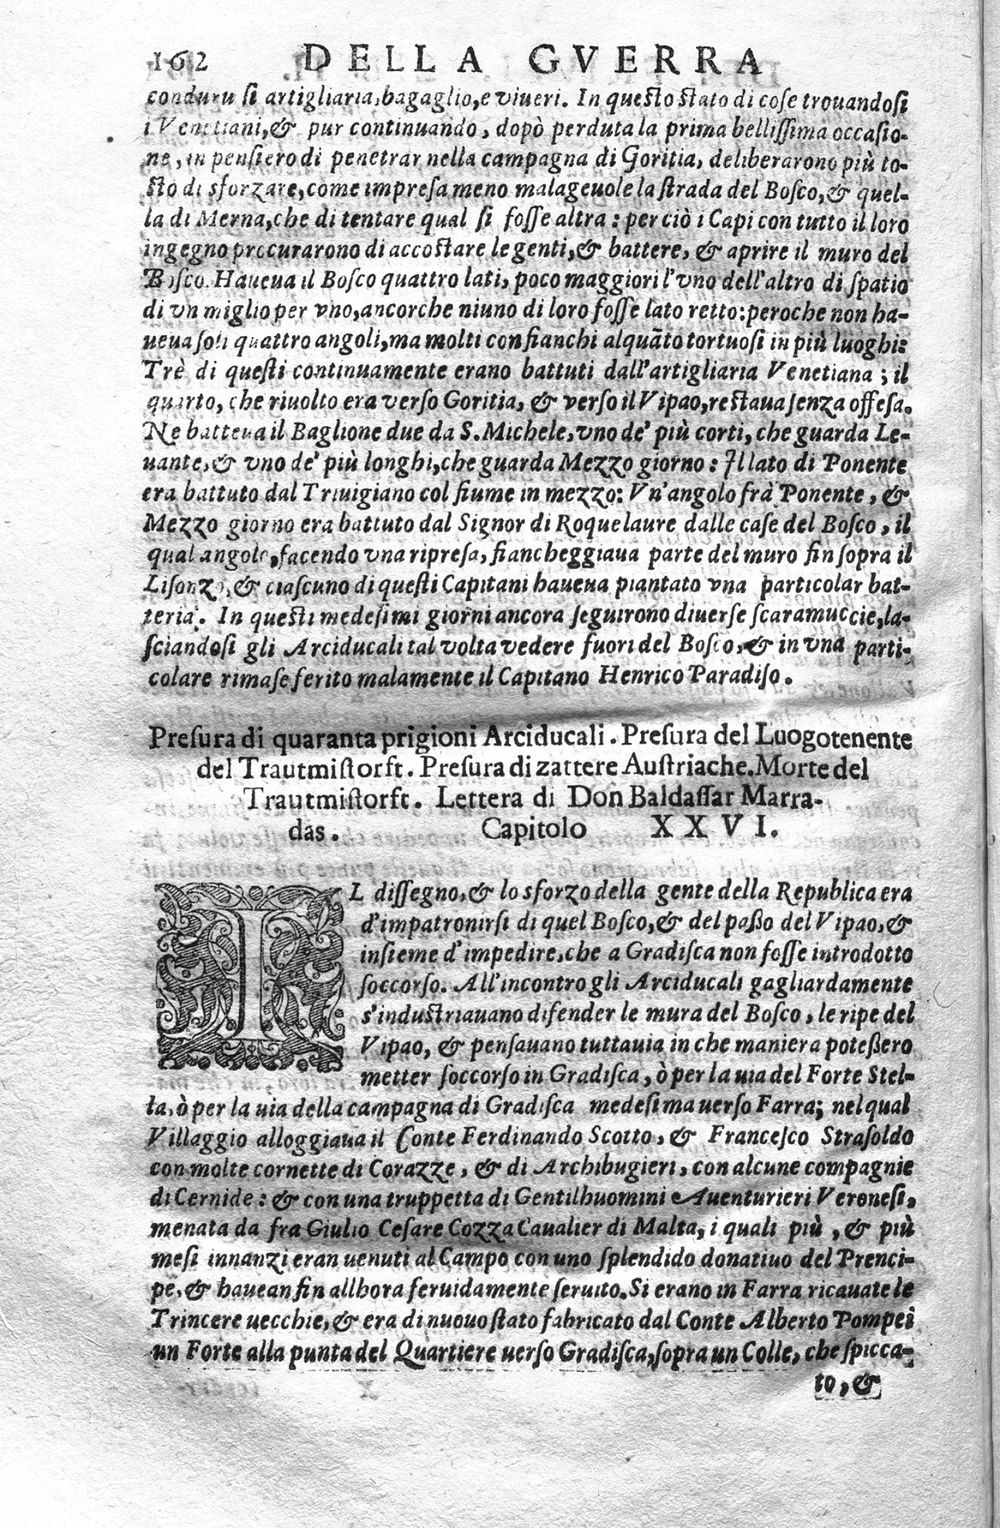 162 DELLA GVERRA
condurui si artigliaria, bagaglio, e viueri. In questo stato di cose trouandosi
i Venetiani, & pur continuando, dopò perduta la prima bellissima occasio-
ne, in pensiero di penetrar nella campagna di Goritia, deliberarono più to-
sto di sforzare, come impresa meno malageuole la strada del Bosco, & quel-
la di Merna, che di tentare qual si fosse altra: per ciò i Capi con tutto il loro
ingegno procurarono di accostare le genti, & battere, & aprire il muro del
Bosco. Haueua il Bosco quattro lati, poco maggiori l'vno dell'altro di spatio
di vn miglio per vno, ancorche niuno di loro fosse lato retto: peroche non ha-
ueua soli quattro angoli, ma molti con fianchi alquãto tortuosi in più luoghi:
Trè di questi continuamente erano battuti dall'artigliaria Venetiana; il
quarto, che riuolto era verso Goritia, & verso il Vipao, restaua senza offesa.
Ne batteua il Baglione due da S. Michele, vno de' più corti, che guarda Le-
uante, & vno de' più longhi, che guarda Mezzo giorno: Il lato di Ponente
era battuto dal Triuigiano col fiume in mezzo: Vn'angolo frà Ponente, &
Mezzo giorno era battuto dal Signor di Roquelaure dalle case del Bosco, il
qual angolo, facendo vna ripresa, fiancheggiaua parte del muro fin sopra il
Lisonzo, & ciascuno di questi Capitani haueua piantato vna particolar bat-
teria. In questi medesimi giorni ancora seguirono diuerse scaramuccie, la-
sciandosi gli Arciducali tal volta vedere fuori del Bosco, & in vna parti-
colare rimase ferito malamente il Capitano Henrico Paradiso.
Presura di quaranta prigioni Arciducali. Presura del Luogotenente
del Trautmistorft. Presura di zattere Austriache. Morte del
Trautmistorft. Lettera di Don Baldassar Marra-
das. Capitolo XXVI.
IL dissegno, & lo sforzo della gente della Republica era
d'impatronirsi di quel Bosco, & del passo del Vipao, &
insieme d'impedire, che a Gradisca non fosse introdotto
soccorso. All'incontro gli Arciducali gagliardamente
s'industriauano difender le mura del Bosco, le ripe del
Vipao, & pensauano tuttauia in che maniera potessero
metter soccorso in Gradisca, ò per la uia del Forte Stel-
la, ò per la uia della campagna di Gradisca medesima uerso Farra; nel qual
Villaggio alloggiaua il Conte Ferdinando Scotto, & Francesco Strasoldo
con molte cornette di Corazze, & di Archibugieri, con alcune compagnie
di Cernide: & con una truppetta di Gentilhuomini Auenturieri Veronesi,
menata da fra Giulio Cesare Cozza Caualier di Malta, i quali più, & più
mesi innanzi eran uenuti al Campo con uno splendido donatiuo del Prenci-
pe, & hauean fin allhora feruidamente seruito. Si erano in Farra ricauate le
Trincere uecchie, & era di nuouo stato fabricato dal Conte Alberto Pompei
un Forte alla punta del Quartiere uerso Gradisca, sopra un Colle, che spicca-
to, &